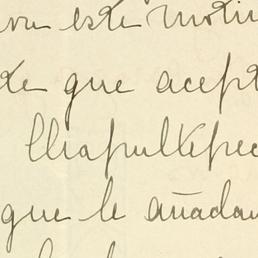 este motiv
te que acept
Chapultepec
que le añadan